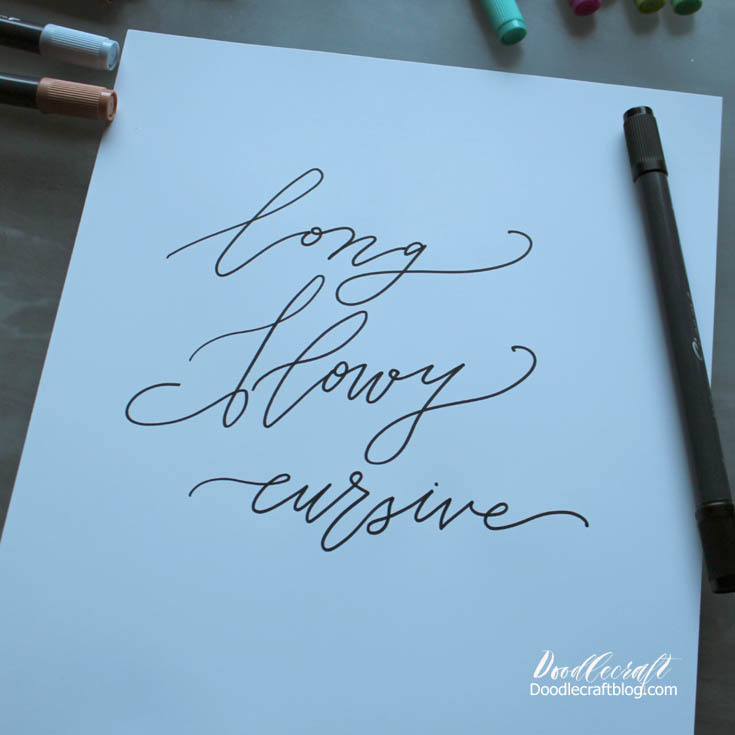 long
flowy
cursive
Doodlecraft
Doodlecraftblog.com